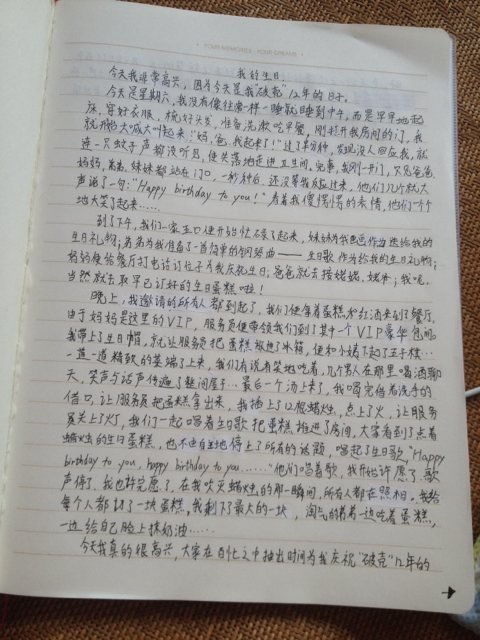 YOUR MEMORIES · YOUR DREAMS
我的生日.
今天我非常高兴，因为今天是我“破壳”12年的日子。
今天是星期六，我没有像往常一样一睡就睡到中午，而是早早地起
床，穿好衣服，梳好头发，准备洗漱吃早餐，刚打开我房间的门，我
就开始大喊大叫起来：“妈，爸，我起来了！”过了半分钟，发现没人回应我，就
连一只蚊子声都没听见，便失落地走进卫生间。完事，我刚一开门，只见爸爸
妈妈，弟弟，妹妹都站在门口，一秒钟后，还没等我反应过来，他们几个就大
声说了一句：“Happy birthday to you！”看着我傻愣愣的表情，他们一个个
地大笑了起来……
到了下午，我们一家五口便开始忙碌了起来，妹妹为我画画作为送给我的
生日礼物；弟弟为我准备了一首简单的钢琴曲——生日歌作为给我的生日礼物；
妈妈便给餐厅打电话订位子为我庆祝生日；爸爸就去接姥姥，姥爷；我呢，
当然就去取早已订好的生日蛋糕啦！
晚上，我邀请的所有人都到起了，我们便拿着蛋糕和红酒来到了餐厅，
由于妈妈是这里的VIP，服务员便带领我们到了其中一个VIP豪华包间。
我带上了生日帽，就让服务员把蛋糕放进了冰箱，便和小 下起了五子棋…
一道一道精致的菜端了上来，我们有说有笑地吃着，几个男人在那里喝酒聊
天，笑声与话声传遍了整间屋子…最后一个汤上来了，我喝完借着洗手的
借口，让服务员把蛋糕拿出来，我插上了12根蜡烛，点上了火，让服务
员关上了灯，我们一起唱着生日歌把蛋糕推进了房间，大家看到了点着
蜡烛的生日蛋糕，也不由自主地停上了所有的话题，唱起了生日歌，“Happy
birthday to you, happy birthday to you……”他们唱着歌，我开始许愿了.歌
声停了，我也许完愿了，在我吹灭蜡烛的那一瞬间，所有人都在照相。我给
每个人都切了一块蛋糕，我剩下了最大的一块，淘气的弟弟一边吃着蛋糕，
一边给自己脸上抹奶油……
今天我真的很高兴，大家在百忙之中抽出时间为我庆祝“破壳”12年的